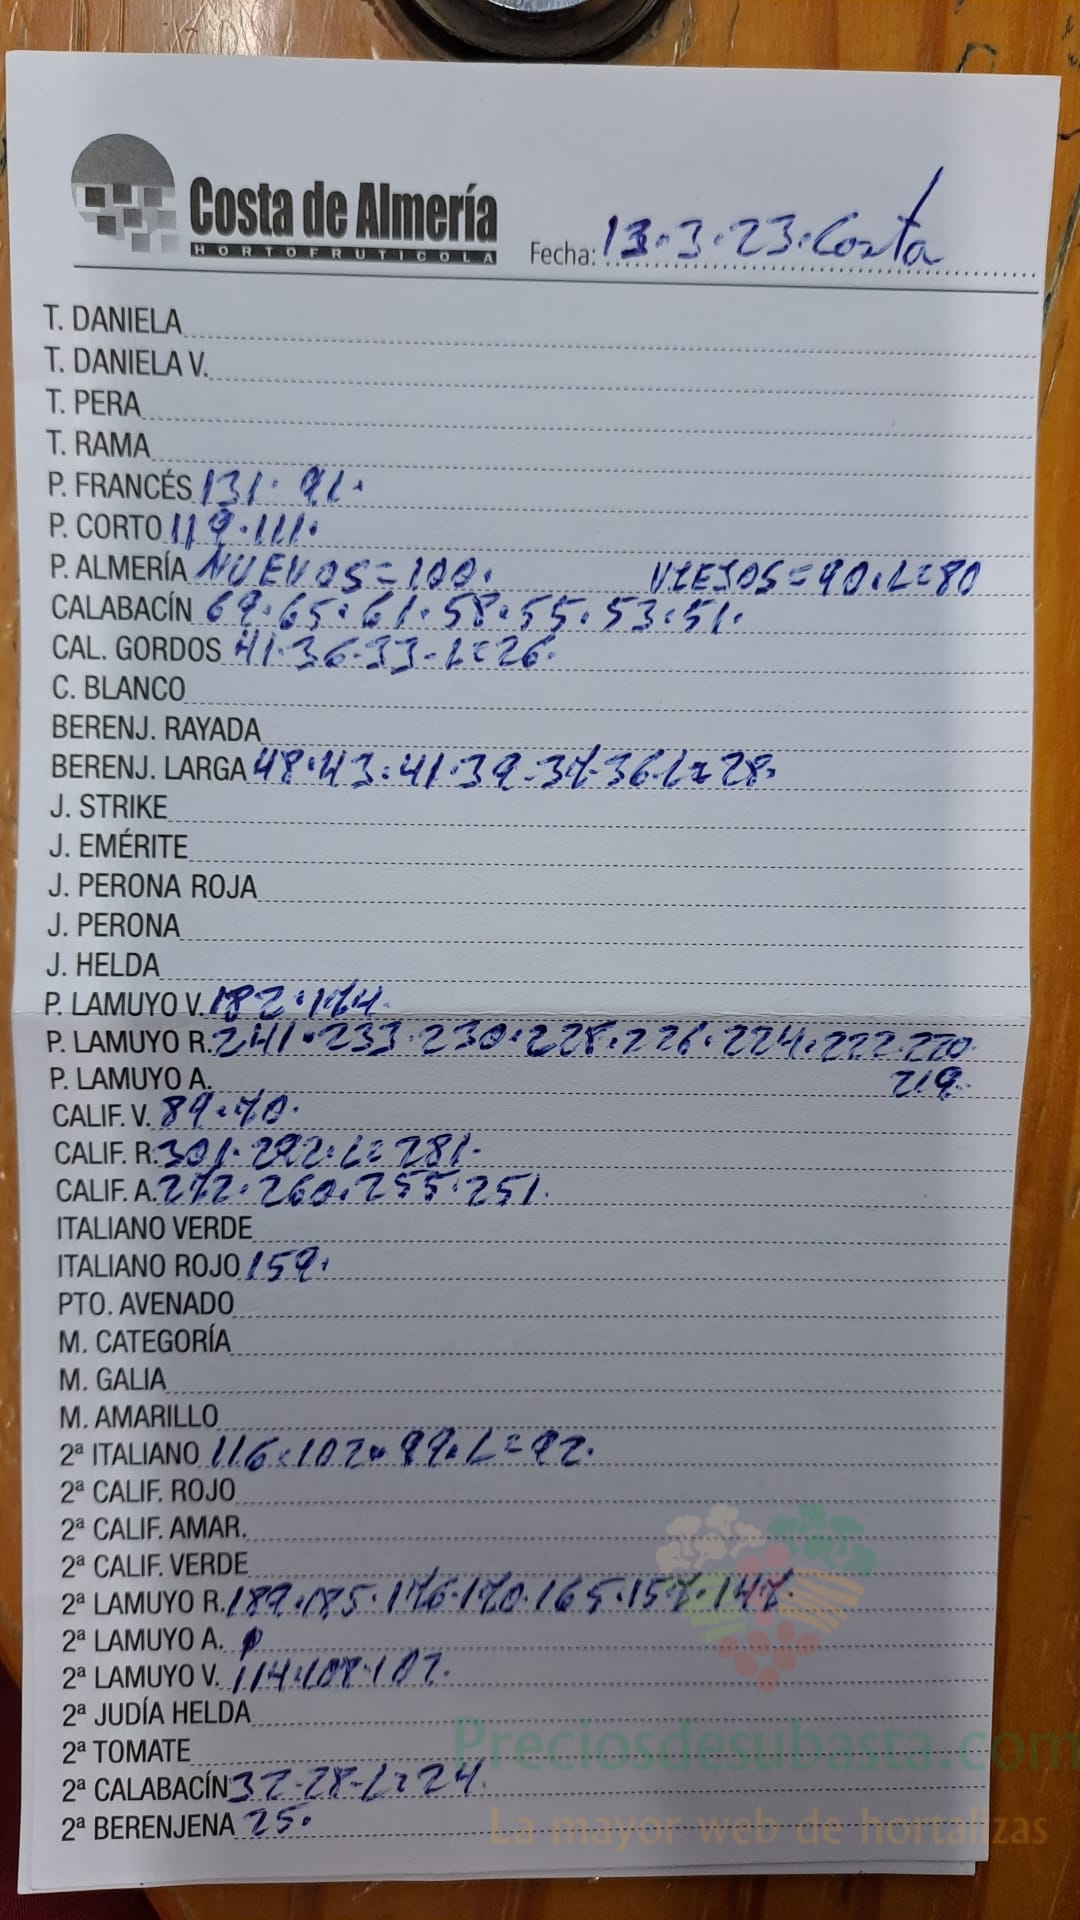 Costa de Almería
HORTOFRUTICOLA
Fecha: 13.3.23.Costa
T. DANIELA
T. DANIELA V.
T. PERA
T. RAMA
P. FRANCÉS 131. 91.
P. CORTO 119.111.
P. ALMERÍA NUEVOS=100. VIEJOS=90.L=80
CALABACÍN 69.65.61.58.55.53.51.
CAL. GORDOS 41.36-33-L=26.
C. BLANCO
BERENJ. RAYADA
BERENJ. LARGA 48.43.41.39-37-36-L=28.
J. STRIKE
J. EMÉRITE
J. PERONA ROJA
J. PERONA
J. HELDA
P. LAMUYO V. 182.174.
P. LAMUYO R. 241.233.230.228.226.224.222.220.
219.
P. LAMUYO A.
CALIF. V. 89.70.
CALIF. R. 301.292.L=281.
CALIF. A. 272.260.255.251.
ITALIANO VERDE
ITALIANO ROJO 159.
PTO. AVENADO
M. CATEGORÍA
M. GALIA
M. AMARILLO
2ª ITALIANO 116.102.99.L=92.
2ª CALIF. ROJO
2ª CALIF. AMAR.
2ª CALIF. VERDE
2ª LAMUYO R. 189.185.176.170.165.157.147.
2ª LAMUYO A.
2ª LAMUYO V. 114.108.107.
2ª JUDÍA HELDA
2ª TOMATE
2ª CALABACÍN 32-28-L=24.
2ª BERENJENA 25.
Preciosdesubasta.com
La mayor web de hortalizas